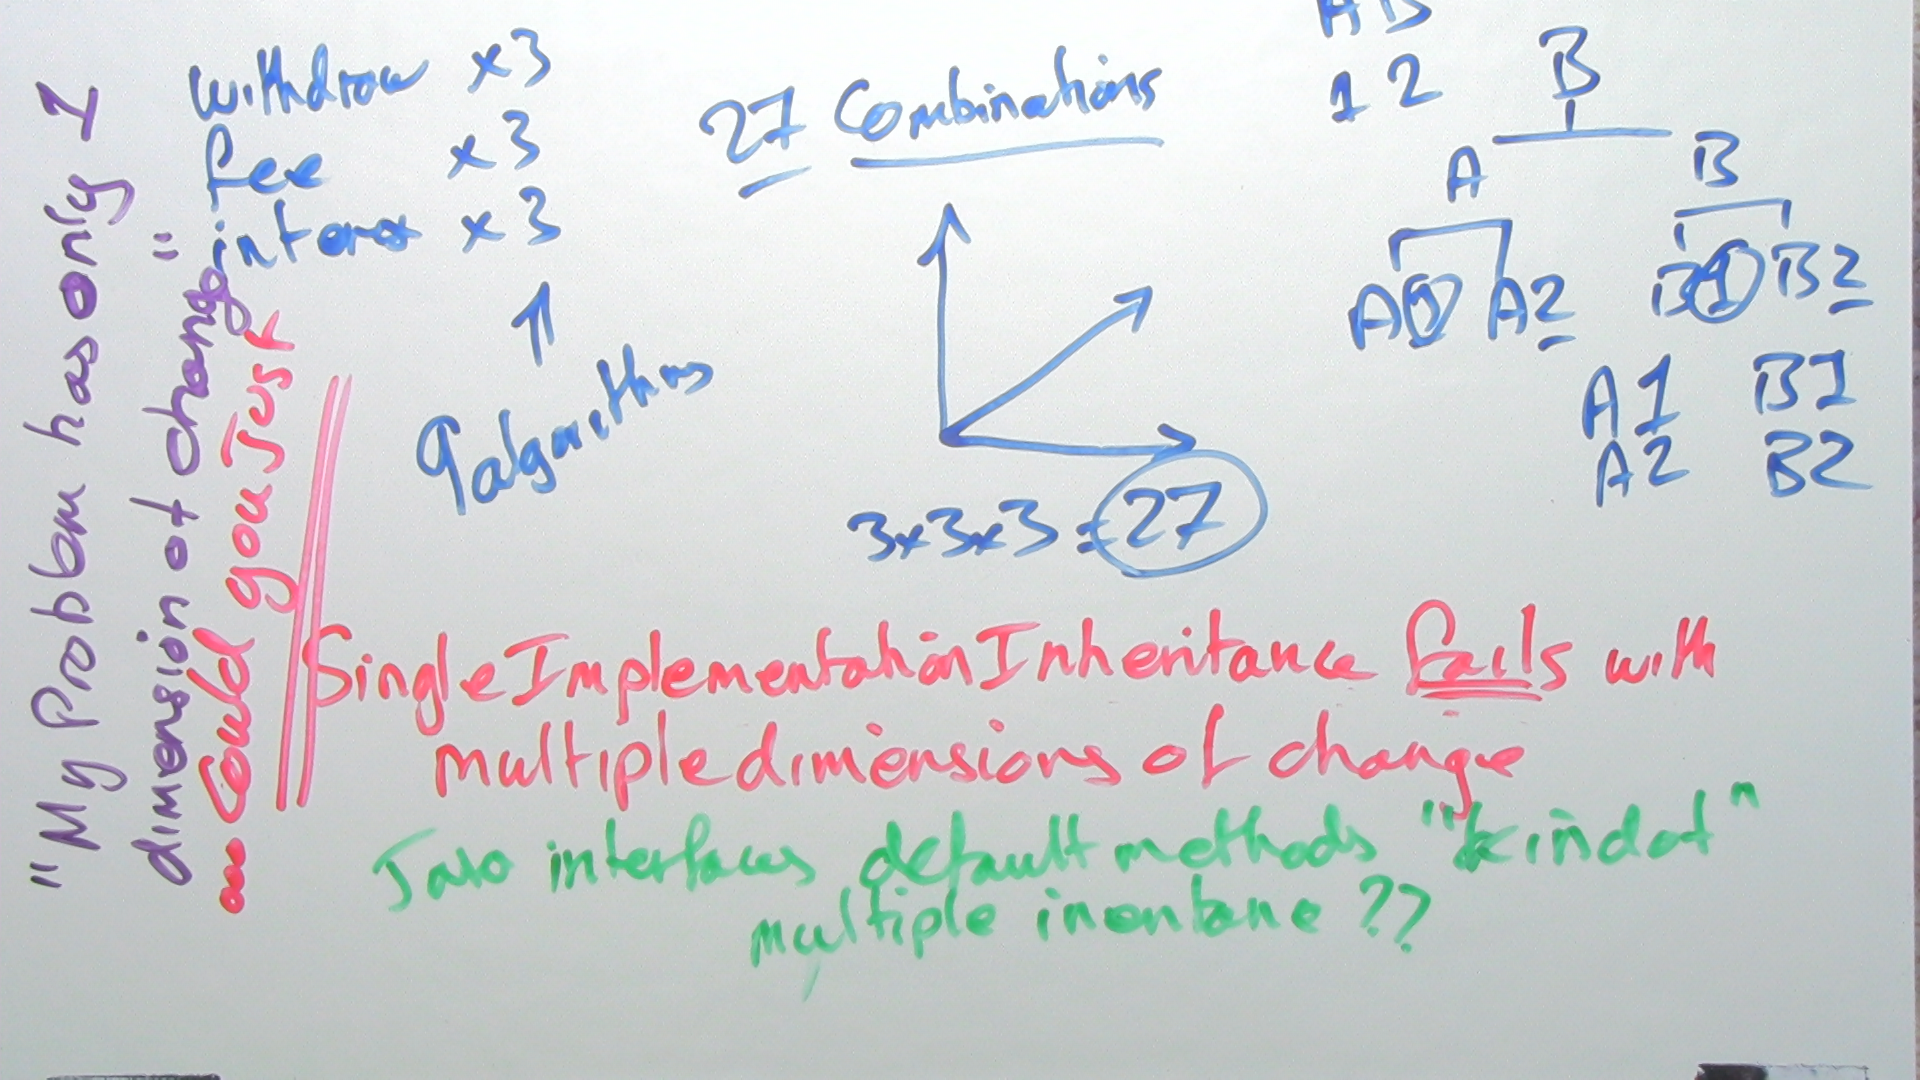 "My Problem has only 1
dimension of change"
... Could you Just
withdraw x3
fee x3
x3
9 algorithms
27 Combinations
3x3x3 = 27
AB
1 2
B
A B
A1 A2 B1 B2
A1 B1
A2 B2
Single Implementation Inheritance fails with
multiple dimensions of change
Java interfaces default methods "kindof"
multiple ??